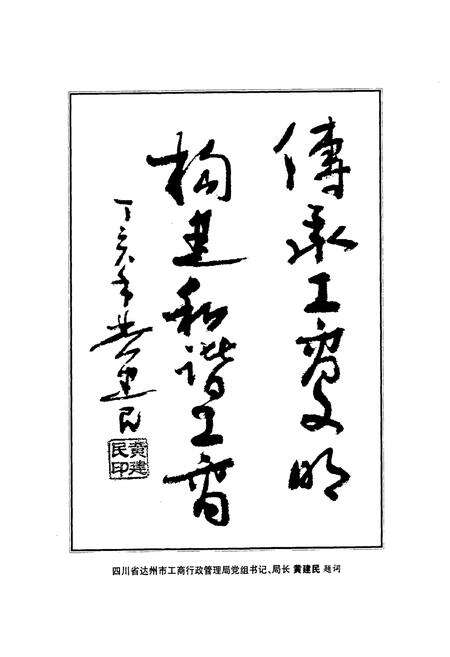 傳承工商文明
构建和谐工商
丁亥年黄建民
黄建民印
四川省达州市工商行政管理局党组书记、局长 黄建民 题词